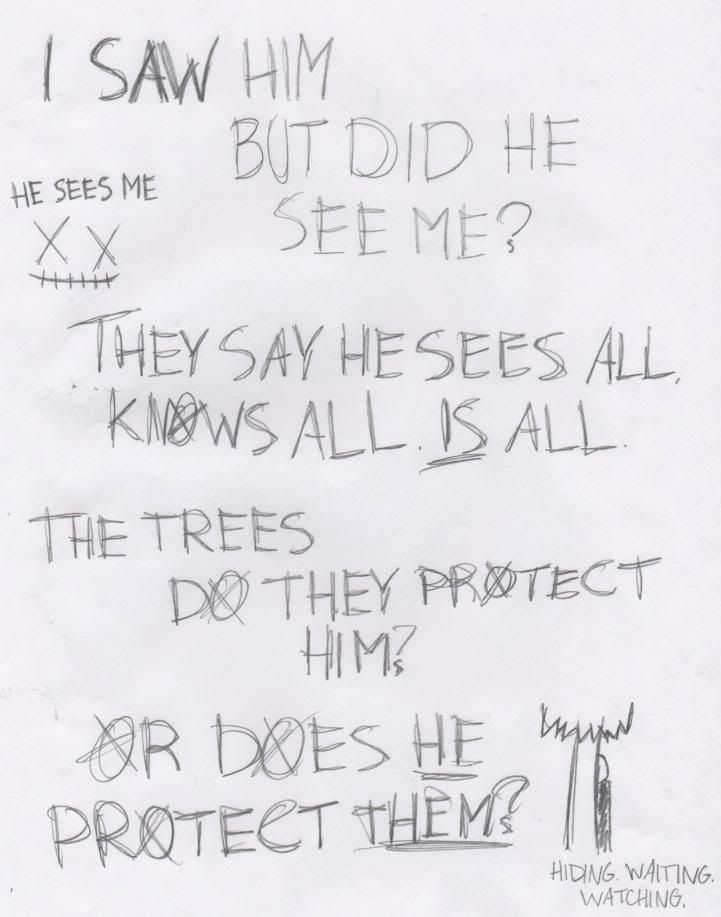 I SAW HIM
BUT DID HE
SEE ME?
HE SEES ME
THEY SAY HE SEES ALL.
KNOWS ALL. IS ALL.
THE TREES
DO THEY PROTECT
HIM?
OR DOES HE
PROTECT THEM?
HIDING. WAITING.
WATCHING.